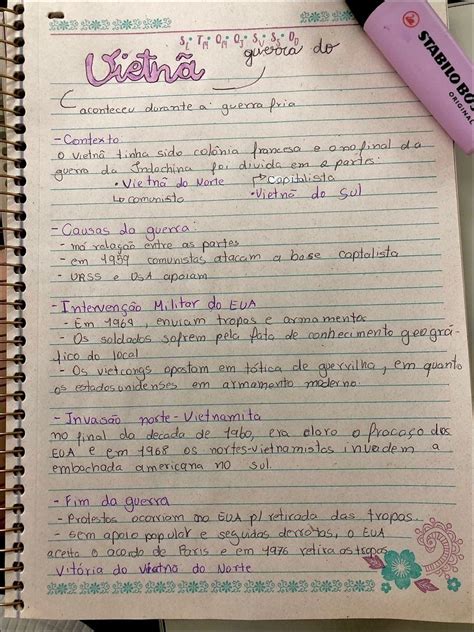 guerra do
Vietnã
aconteceu durante a guerra fria
- Contexto
o Vietnã tinha sido colônia francesa e ano final da
guerra da Indochina foi divida em 2 partes:
• Vietnã do Norte
↳ comunista
↱ Capitalista
• Vietnã do Sul
- Causas da guerra
- má relação entre as partes
- em 1959 comunistas atacam a base captalista
- URSS e USA apoiam
- Intervenção Militar do EUA
- Em 1964, enviam tropas e armamentos
- Os soldados sofrem pela fata de conhecimento geográ-
fico do local
- Os vietcongs apostam em tática de guerrilha, em quanto
os estadosunidenses em armamento moderno.
- Invasão norte-Vietnamita
no final da decada de 1960, era claro o fracaço dos
EUA e em 1968 os nortes-vietnamistas invadem a
embachada americana no sul
- Fim da guerra
- Protestos ocorriam no EUA p/ retirada das tropas.
- sem apoio popular e seguidas derrotas, o EUA
aceita o acordo de Paris e em 1976 retira as tropas
Vitória do Vietnã do Norte
STABILO BO
ORIGINAL